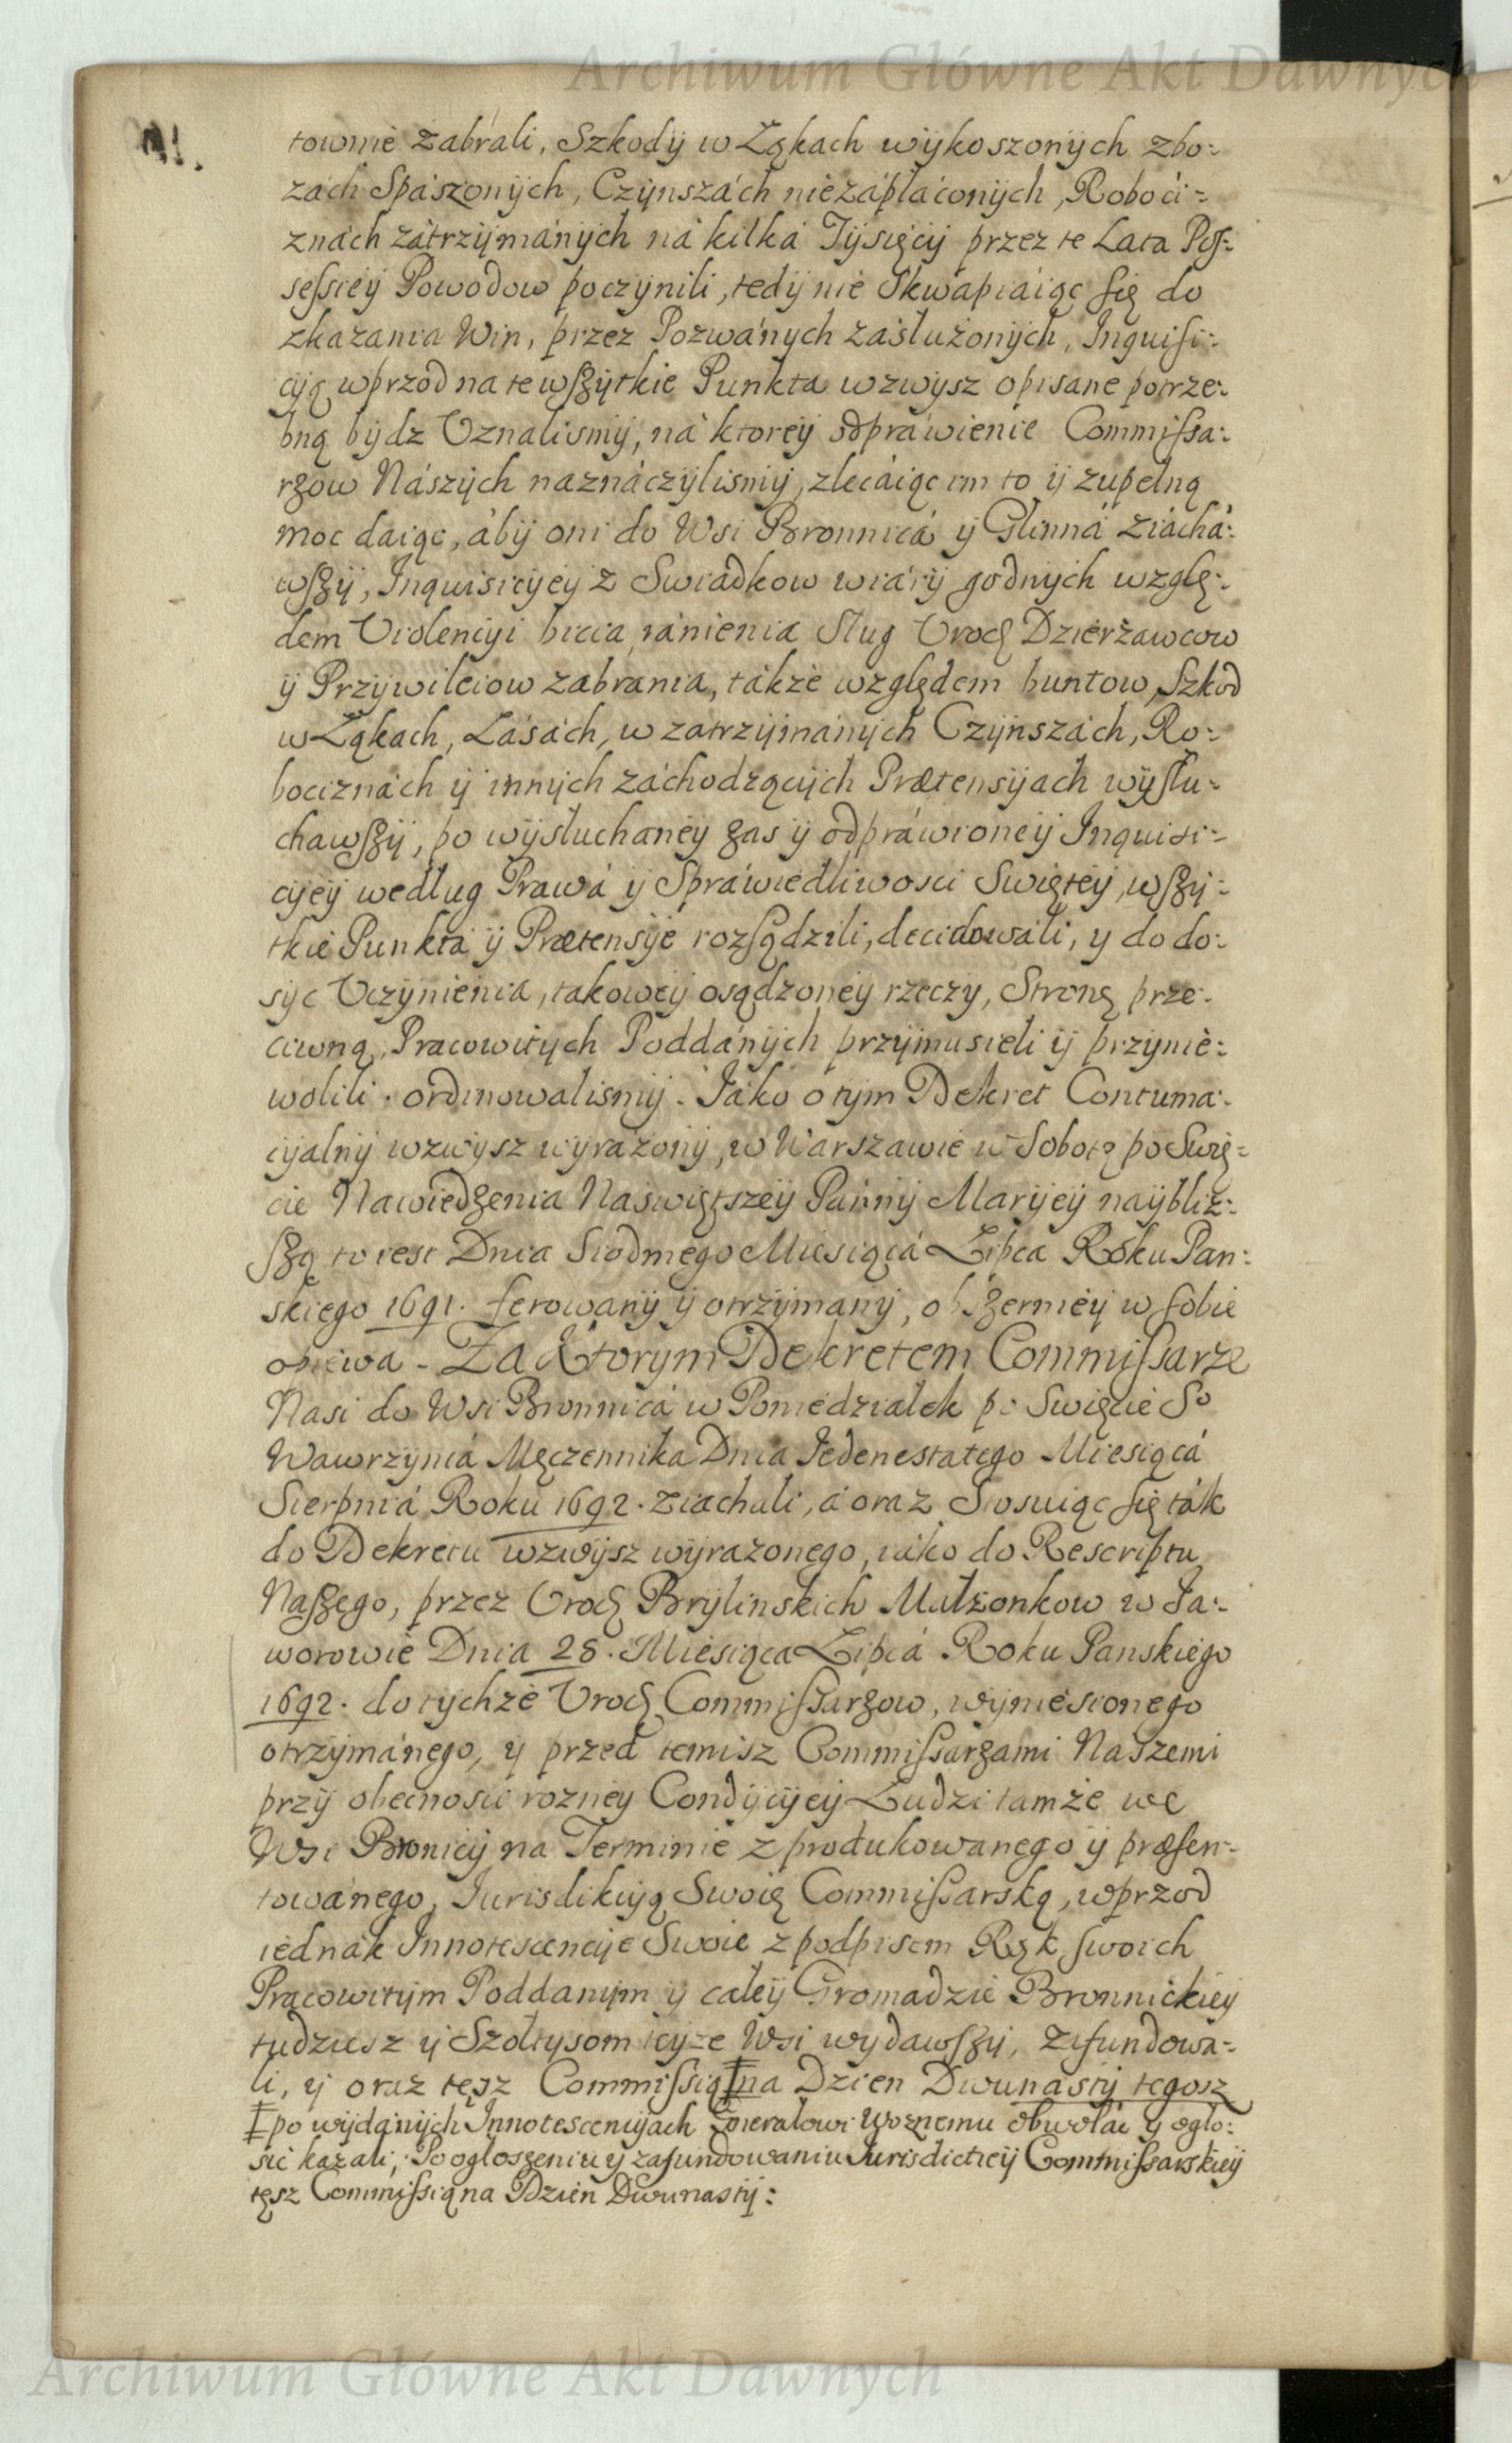 Archiwum Główne Akt Dawnych
townie zabrali, Szkody w Łąkach wykoszonych zbo:
zách Spászonÿch, Czynszách niezápłáconÿch, Roboci=
znách zátrzymánÿch ná kilká Tÿsięcÿ przez te Lata Pos:
sessiey Powodow poczynili, tedÿ nie Skwápiáiąc się do
zkazania Win, przez Pozwánych zasłużonÿch, Inquisi:
cyą wprzod na te wszÿtkie Punkta wzwysz opisane potrze:
bną bÿdz Uznalismÿ, ná ktorey odpráwienie Commissa:
rzow Nászÿch naznáczÿlismÿ, zlecáiąc im to ÿ zupełną
moc daiąc, ábÿ oni do Wsi Bronnicá ÿ Glinná ziáchá:
wszÿ, Inquisicÿeÿ z Swiadkow wiárÿ godnych wzglę:
dem Violencÿi bicia, ránienia Sług Urodz Dzierżawcow
ÿ Przÿwileiow zabrania, tákże względem buntow, Szkod
w Łąkach, Lásách, w zatrzÿmánÿch Czÿnszách, Ro:
bociznách ÿ innÿch záchodzącÿch Prætensÿach wÿsłu:
chawszÿ, po wÿsłuchaneÿ zas ÿ odpráwioneÿ Inquisi:
cÿeÿ według Prawá ÿ Spráwiedliwosci Swięteÿ, wszÿ:
tkie Punktá ÿ Prætensÿe rozsądzili, decidowáli, y do do:
syc Uczÿnienia, takoweÿ osądzoneÿ rzeczy, Stronę prze:
ciwną, Pracowitÿch Poddánÿch przÿmusieli ÿ przynie:
wolili. ordinowalismÿ. Iáko o tym Dekret Contuma:
cÿalnÿ wzwysz wÿrażonÿ, w Warszawie w Sobotę po Swię=
cie Nawiedzenia Naswiętszeÿ Pannÿ Marÿeÿ naÿbliz:
szą to iest Dnia Siodmego Miesiącá Lipca Roku Pan:
skiego 1691. ferowanÿ ÿ otrzÿmanÿ, obszernieÿ w sobie
opiewa - Za Ktorym Dekretem Commissarze
Nasi do Wsi Bronnicá w Poniedziałek po Swięcie So
Wawrzyncá Męczennika Dnia Iedenestatego Miesiącá
Sierpniá Roku 1692. ziachali, á oraz Stosuiąc się ták
do Dekretu wzwÿsz wÿrazonego, iáko do Rescriptu
Naszego, przez Urodz Brÿlinskich Małżonkow w Ia:
worowie Dnia 28. Miesiąca Lipcá Roku Panskiego
1692. do tÿchże Urodz Commissarzow, wÿniesionego
otrzÿmánego, ÿ przed temisz Commissarzami Naszemi
przÿ obecnosci rozney Condÿcÿeÿ Ludzi tamże we
Wsi Bronicÿ na Terminie z produkowanego ÿ præsen:
towánego, Iurisdikcÿą Swoię Commissarską, wprzod
iednák Innotescencÿe Swoie z podpisem Rąk swoich
Pracowitÿm Poddanÿm ÿ całeÿ Gromadzie Bronnickieÿ
tudziesz ÿ Szołtysom teÿze Wsi wydawszÿ, zafundowa:
li, ÿ oraz tęsz Commissią ‡ na Dzien Dwunastÿ tegosz
‡ po wÿdánÿch Innotescencÿach Generałowi Woznemu obwołác ÿ ogło:
sić kazali, Po ogłoszeniu ÿ zafundowaniu Iurisdictieÿ Commissarskieÿ
tęsz Commissią na Dzien Dwunastÿ:
Archiwum Główne Akt Dawnych